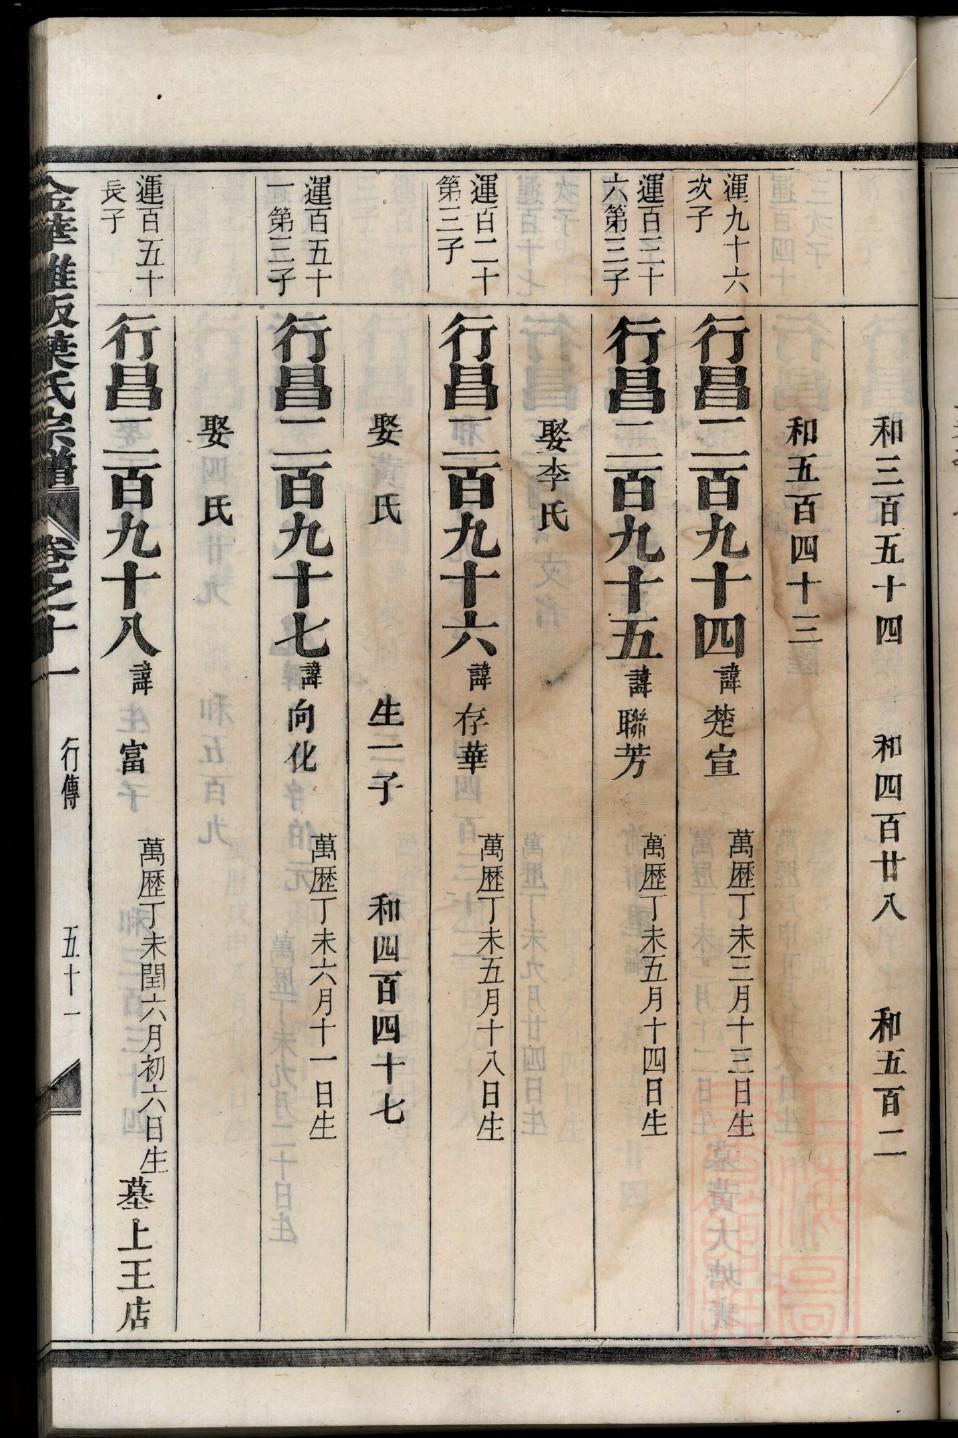 和三百五十四 和四百廿八 和五百二
和五百四十三
運九十六
次子
行昌二百九十四 諱楚宣 萬歷丁未三月十三日生
運百三十
六第三子
行昌二百九十五 諱聯芳 萬歷丁未五月十四日生
娶李氏
運百二十
第三子
行昌二百九十六 諱存華 萬歷丁未五月十八日生
娶 氏 生一子 和四百四十七
運百五十
一第三子
行昌二百九十七 諱向化 萬歷丁未六月十一日生
娶 氏
運百五十
長子
行昌二百九十八 諱富 萬歷丁未閏六月初六日生 墓上王店
金華 阪葉氏宗譜 卷之十一 行傳 五十一